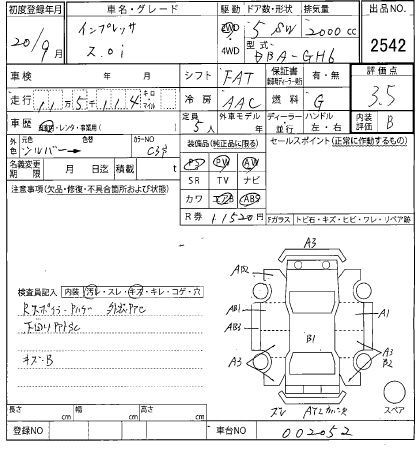 初度登録年月 車名・グレード 駆動 ドア数・形状 排気量 出品NO.
20/9月 インプレッサ 2.0i 2WD 4WD 5 SW 2000cc 2542
型式 DBA-GH6
車検 年 月 シフト FAT 保証書 有・無 評価点
走行 11万5千114 キロ マイル 冷房 AAC 燃料 G 3.5
車歴 自家用・レンタ・事業用( ) 定員 5人 外車モデル 年 ディーラー 並行 ハンドル 左・右 内装評価 B
外色 元色 シルバー 色替 カラーNO 装備品(純正品に限る) セールスポイント(正常に作動するもの)
名義変更期限 月 日迄 積載 t PS PW AW
SR TV ナビ
注意事項(欠品・修復・不具合箇所および状態) カワ エアB ABS
R券 Fガラス トビ石・キズ・ヒビ・ワレ・リペア跡
A3
AB2
検査員記入 内装 汚レ・スレ・キズ・キレ・コゲ・穴
AB1 A1
AB3 B1
キズ・B A3 A3 B2
スペア
長さ cm 幅 cm 高さ cm
登録NO 車台NO 002052